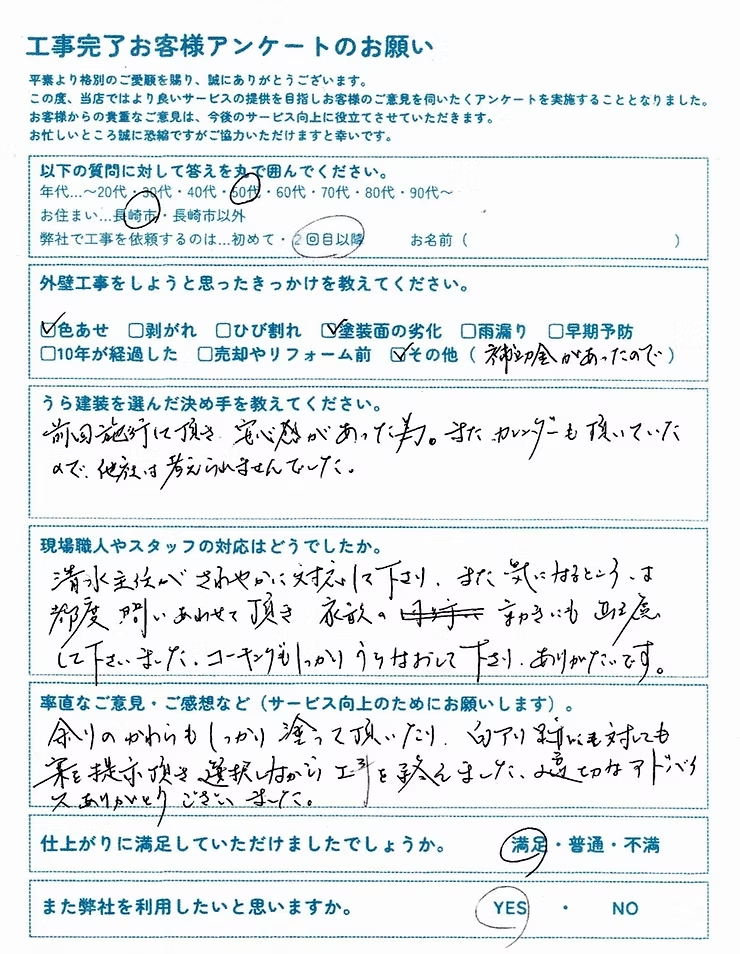 工事完了お客様アンケートのお願い
平素より格別のご愛顧を賜り、誠にありがとうございます。
この度、当店ではより良いサービスの提供を目指しお客様のご意見を伺いたくアンケートを実施することとなりました。
お客様からの貴重なご意見は、今後のサービス向上に役立てさせていただきます。
お忙しいところ誠に恐縮ですがご協力いただけますと幸いです。
以下の質問に対して答えを丸で囲んでください。
年代…～20代・30代・40代・50代・60代・70代・80代・90代～
お住まい…長崎市・長崎市以外
弊社で工事を依頼するのは…初めて・2回目以降 お名前（ ）
外壁工事をしようと思ったきっかけを教えてください。
☑色あせ □剥がれ □ひび割れ ☑塗装面の劣化 □雨漏り □早期予防
□10年が経過した □売却やリフォーム前 ☑その他（補助金があったので）
うら建装を選んだ決め手を教えてください。
前回施行して頂き、安心感があった為。また カレンダーも頂いていた
ので、他社は考えられませんでした。
現場職人やスタッフの対応はどうでしたか。
清水主任がさわやかに対応して下さり、また気になるところは
都度 問いあわせて頂き 家族の 動きにも
して下さいました。コーキングもしっかりうちなおして下さり、ありがたいです。
率直なご意見・ご感想など（サービス向上のためにお願いします）。
余りのかわらもしっかり塗って頂いたり、白アリ に対しても
案を提示頂き選択しながら工事を終えました。適切なアドバイ
スありがとうございました。
仕上がりに満足していただけましたでしょうか。 満足・普通・不満
また弊社を利用したいと思いますか。 YES ・ NO